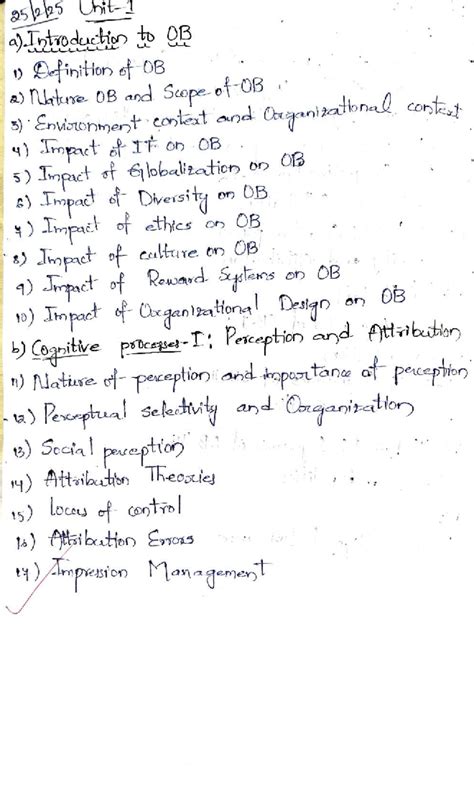 25/2/25 Unit-1
a). Introduction to OB
1) Definition of OB
2) Nature OB and Scope of OB
3) Environment context and Organizational context
4) Impact of IT on OB
5) Impact of Globalization on OB
6) Impact of Diversity on OB
7) Impact of ethics on OB
8) Impact of culture on OB
9) Impact of Reward Systems on OB
10) Impact of Organizational Design on OB
b) Cognitive processes-I: Perception and Attribution
11) Nature of perception and importance of perception
12) Perceptual selectivity and Organization
13) Social perception
14) Attribution Theories
15) locus of control
16) Attribution Errors
17) Impression Management